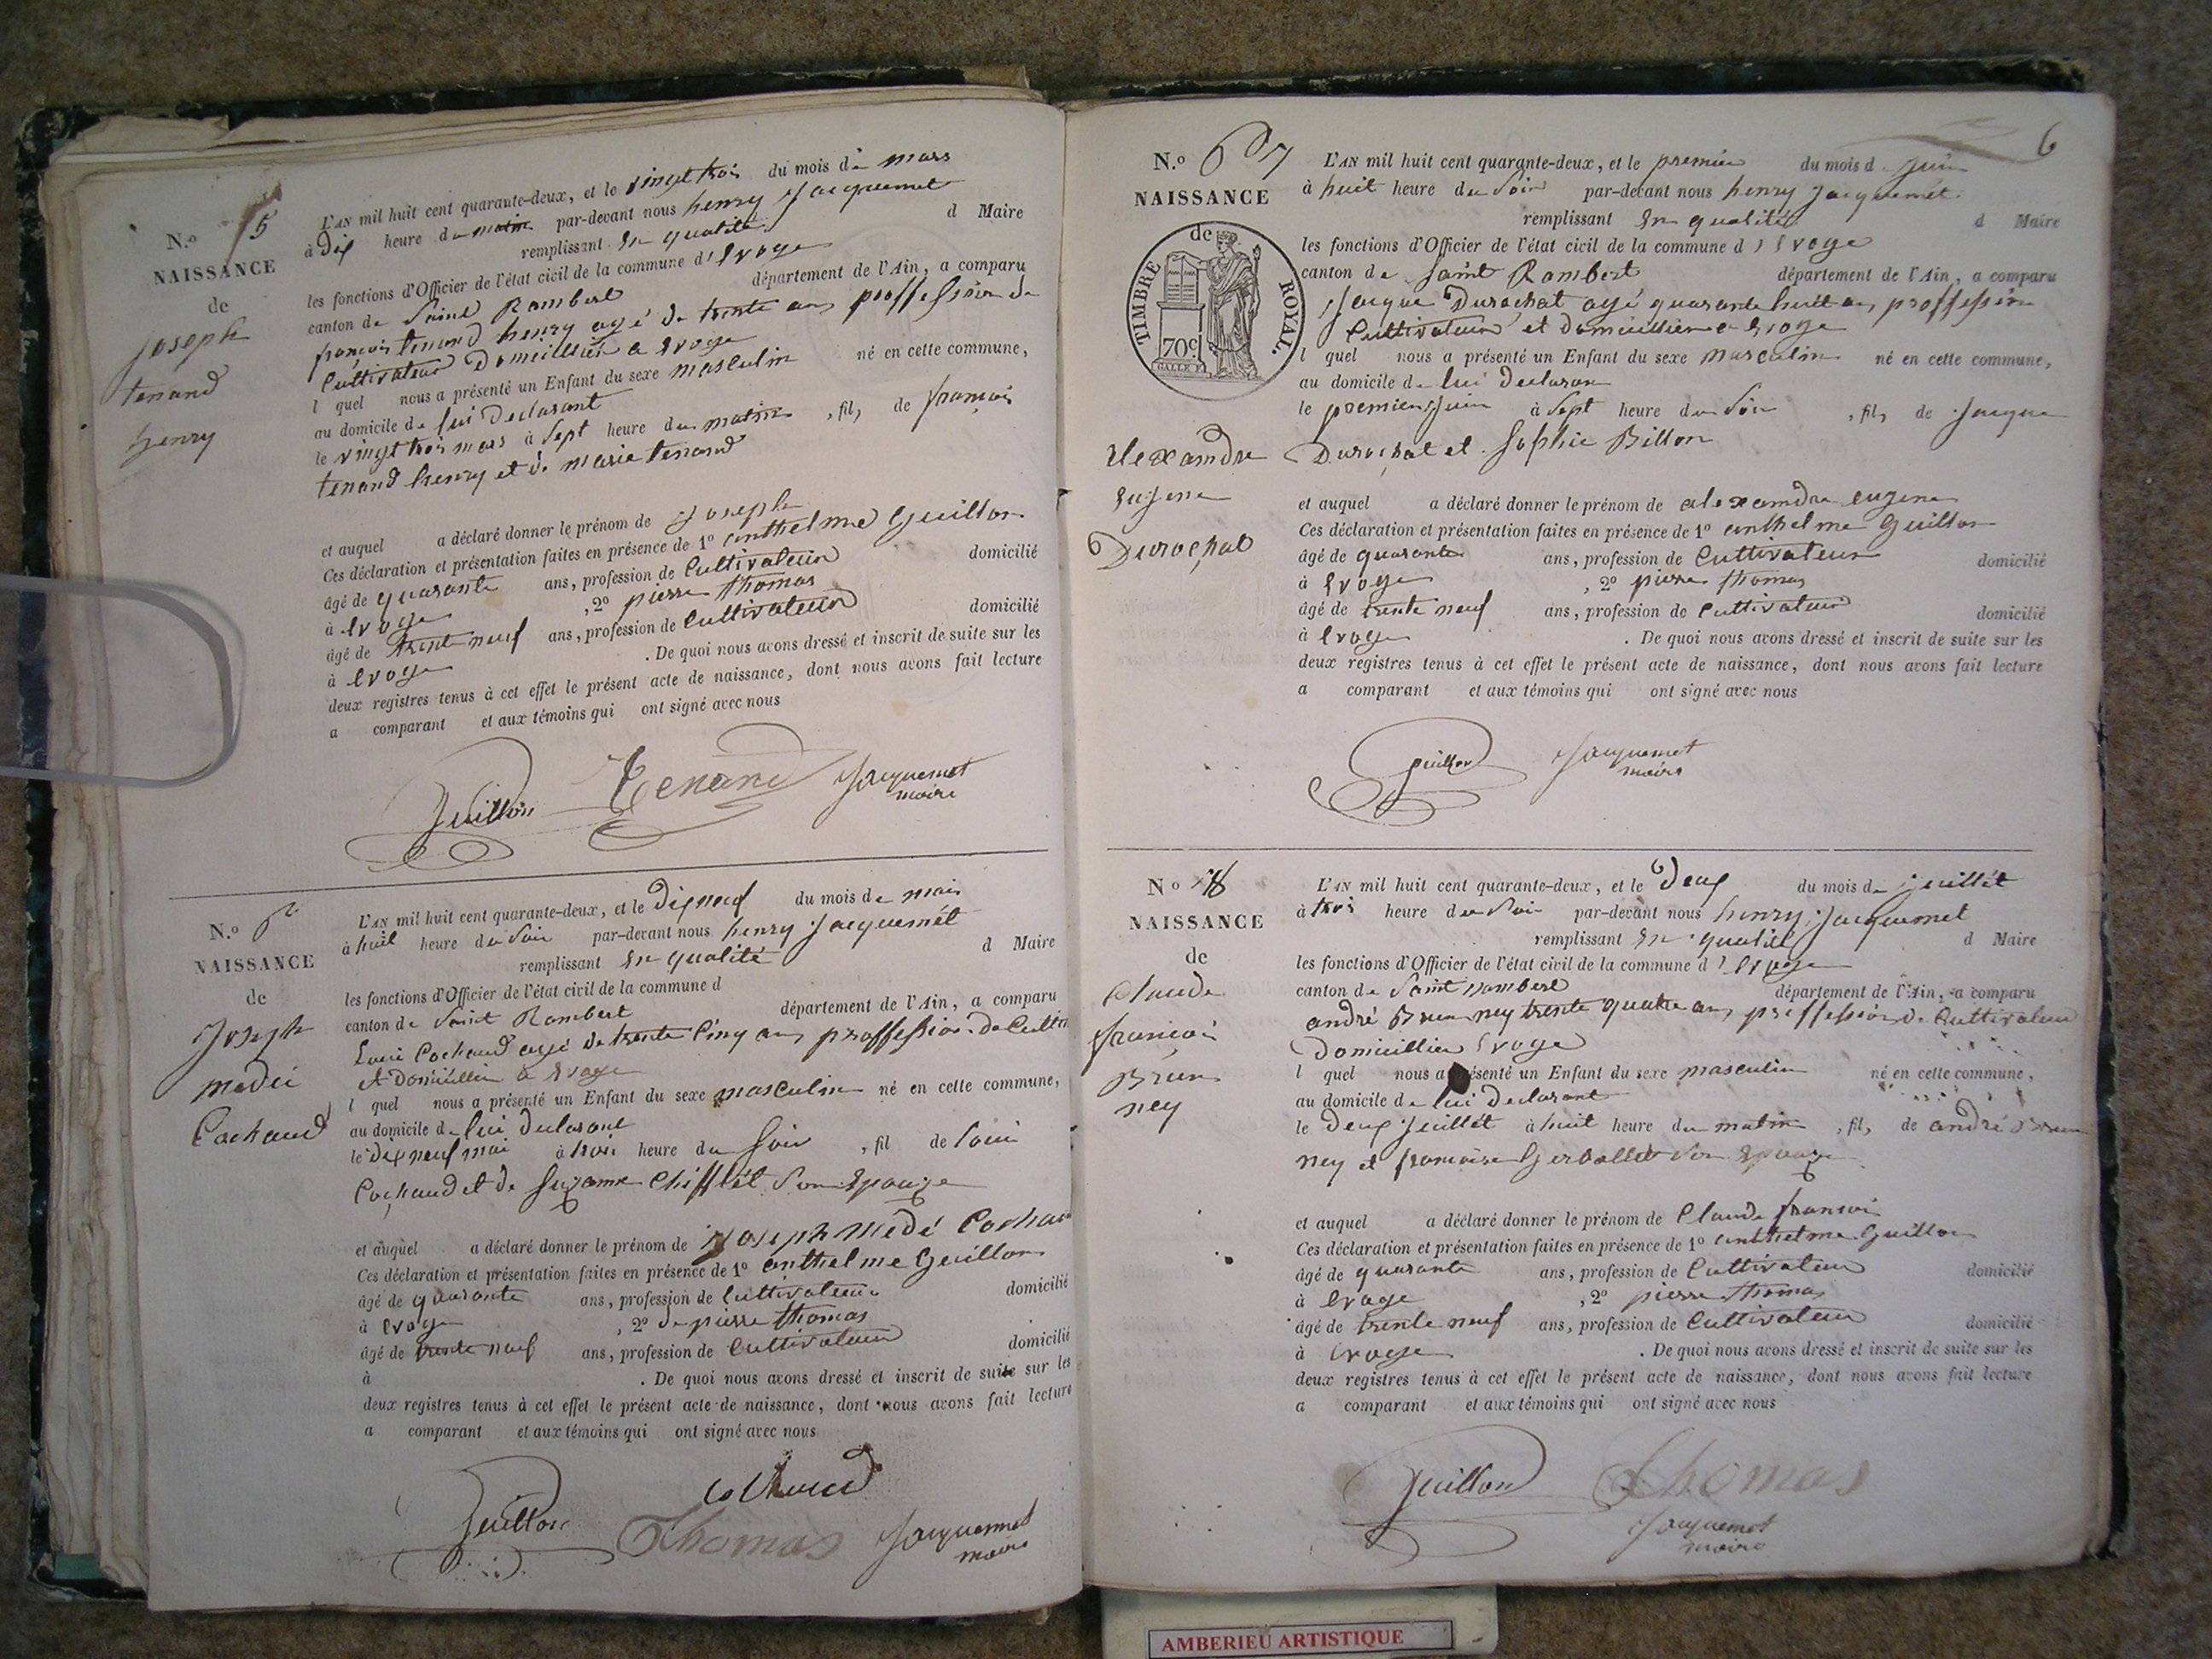 N.o 5
NAISSANCE
de
joseph
tenand
henry
L'AN mil huit cent quarante-deux, et le vingt trois du mois de mars
à dix heure du matin par-devant nous henry Jacquemet
remplissant en qualité d Maire
les fonctions d'Officier de l'état civil de la commune d'Evoge
canton de Saint Rambert département de l'Ain, a comparu
françois tenand henry agé de trente ans proffession de
Cultivateur Domicillié a Evoge
l quel nous a présenté un Enfant du sexe masculin né en cette commune,
au domicile de lui Declarant
le vingt trois mars à sept heure du matin , fils de françois
tenand henry et de marie tenand
et auquel a déclaré donner le prénom de Joseph
Ces déclaration et présentation faites en présence de 1o anthelme Guillon
âgé de quarante ans, profession de Cultivateur domicilié
à Evoge , 2o pierre thomas
âgé de trente neuf ans, profession de Cultivateur domicilié
à Evoge . De quoi nous avons dressé et inscrit de suite sur les
deux registres tenus à cet effet le présent acte de naissance, dont nous avons fait lecture
a comparant et aux témoins qui ont signé avec nous
Guillon Tenand Jacquemet
maire
N.o 6
NAISSANCE
de
Joseph
medei
Cochaud
L'AN mil huit cent quarante-deux, et le Dixneuf du mois de mai
à huit heure du Soir par-devant nous henry Jacquemét
remplissant en qualité d Maire
les fonctions d'Officier de l'état civil de la commune d
canton de Saint Rambert département de l'Ain, a comparu
Loui Cochaud agé de trente Cinq ans proffession de Cultiv
et Domicillié a Evoge
l quel nous a présenté un Enfant du sexe masculin né en cette commune,
au domicile de lui Declarant
le Dixneuf mai à trois heure du Soir , fil de Loui
Cochaud et de Suzanne Chifflét Son Epouze
et auquel a déclaré donner le prénom de Joseph Medé Cochau
Ces déclaration et présentation faites en présence de 1o anthelme Guillon
âgé de quarante ans, profession de Cultivateur domicilié
à Evoge , 2o de pierre thomas
âgé de trente neuf ans, profession de Cultivateur domicilié
à . De quoi nous avons dressé et inscrit de suite sur les
deux registres tenus à cet effet le présent acte de naissance, dont nous avons fait lecture
a comparant et aux témoins qui ont signé avec nous
Guillon Cochaud
Thomas Jacquemet
maire
6
N.o 7
NAISSANCE
de
TIMBRE ROYAL.
70c
alexamdre
Eugene
Durochat
L'AN mil huit cent quarante-deux, et le premier du mois d Juin
à huit heure du Soir par-devant nous henry Jacquemét
remplissant en qualité d Maire
les fonctions d'Officier de l'état civil de la commune d'Evoge
canton de Saint Rambert département de l'Ain, a comparu
Jacque Durochat agé quarante huit ans proffession
Cultivateur et Domicillier a Evoge
l quel nous a présenté un Enfant du sexe masculin né en cette commune,
au domicile de lui Declaran
le premier Juin à Sept heure du Soir , fils de Jacque
Durochat et Sophie Billon
et auquel a déclaré donner le prénom de alexamdre eugene
Ces déclaration et présentation faites en présence de 1o anthelme Guillon
âgé de quarante ans, profession de Cultivateur domicilié
à Evoge , 2o pierre thomas
âgé de trente neuf ans, profession de Cultivateur domicilié
à Evoge . De quoi nous avons dressé et inscrit de suite sur les
deux registres tenus à cet effet le présent acte de naissance, dont nous avons fait lecture
a comparant et aux témoins qui ont signé avec nous
Guillon Jacquemet
maire
No 8
NAISSANCE
de
Claude
françoi
Brun
ney
L'AN mil huit cent quarante-deux, et le Deux du mois de Juillét
à trois heure du Soir par-devant nous henry Jacquemet
remplissant en qualité d Maire
les fonctions d'Officier de l'état civil de la commune d'Evoge
canton de Saint rambert département de l'Ain, a comparu
andré Brun ney trente quatre ans proffession de Cultivateur
Domicillier Evoge
l quel nous a présenté un Enfant du sexe masculin né en cette commune,
au domicile de lui Declarant
le Deux Juillét à huit heure du matin , fils de andré Brun
ney et françoise Gerballet Son Epouze
et auquel a déclaré donner le prénom de Claude fransoi
Ces déclaration et présentation faites en présence de 1o anthelme Guillon
âgé de quarante ans, profession de Cultivateur domicilié
à Evoge , 2o pierre thomas
âgé de trente neuf ans, profession de Cultivateur domicilié
à Evoge . De quoi nous avons dressé et inscrit de suite sur les
deux registres tenus à cet effet le présent acte de naissance, dont nous avons fait lecture
a comparant et aux témoins qui ont signé avec nous
Guillon Thomas
Jacquemet
maire
AMBERIEU ARTISTIQUE